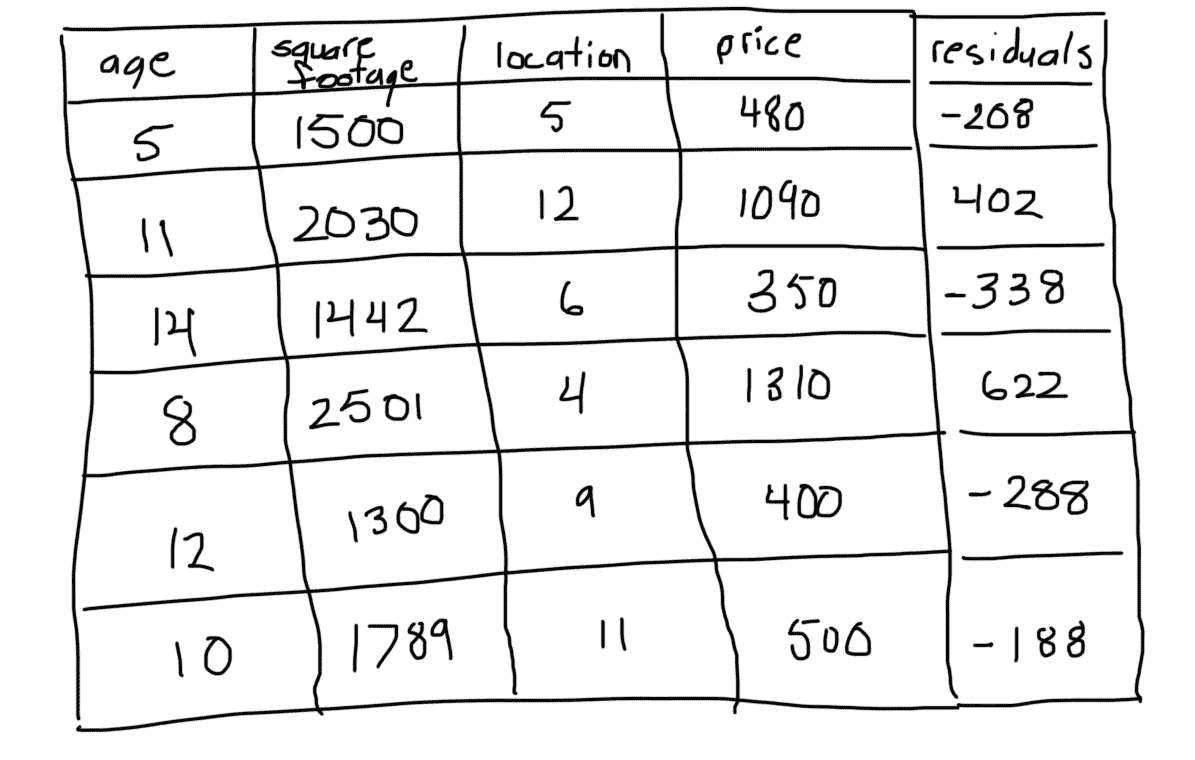 age square footage location price residuals
5 1500 5 480 -208
11 2030 12 1090 402
14 1442 6 350 -338
8 2501 4 1310 622
12 1300 9 400 -288
10 1789 11 500 -188